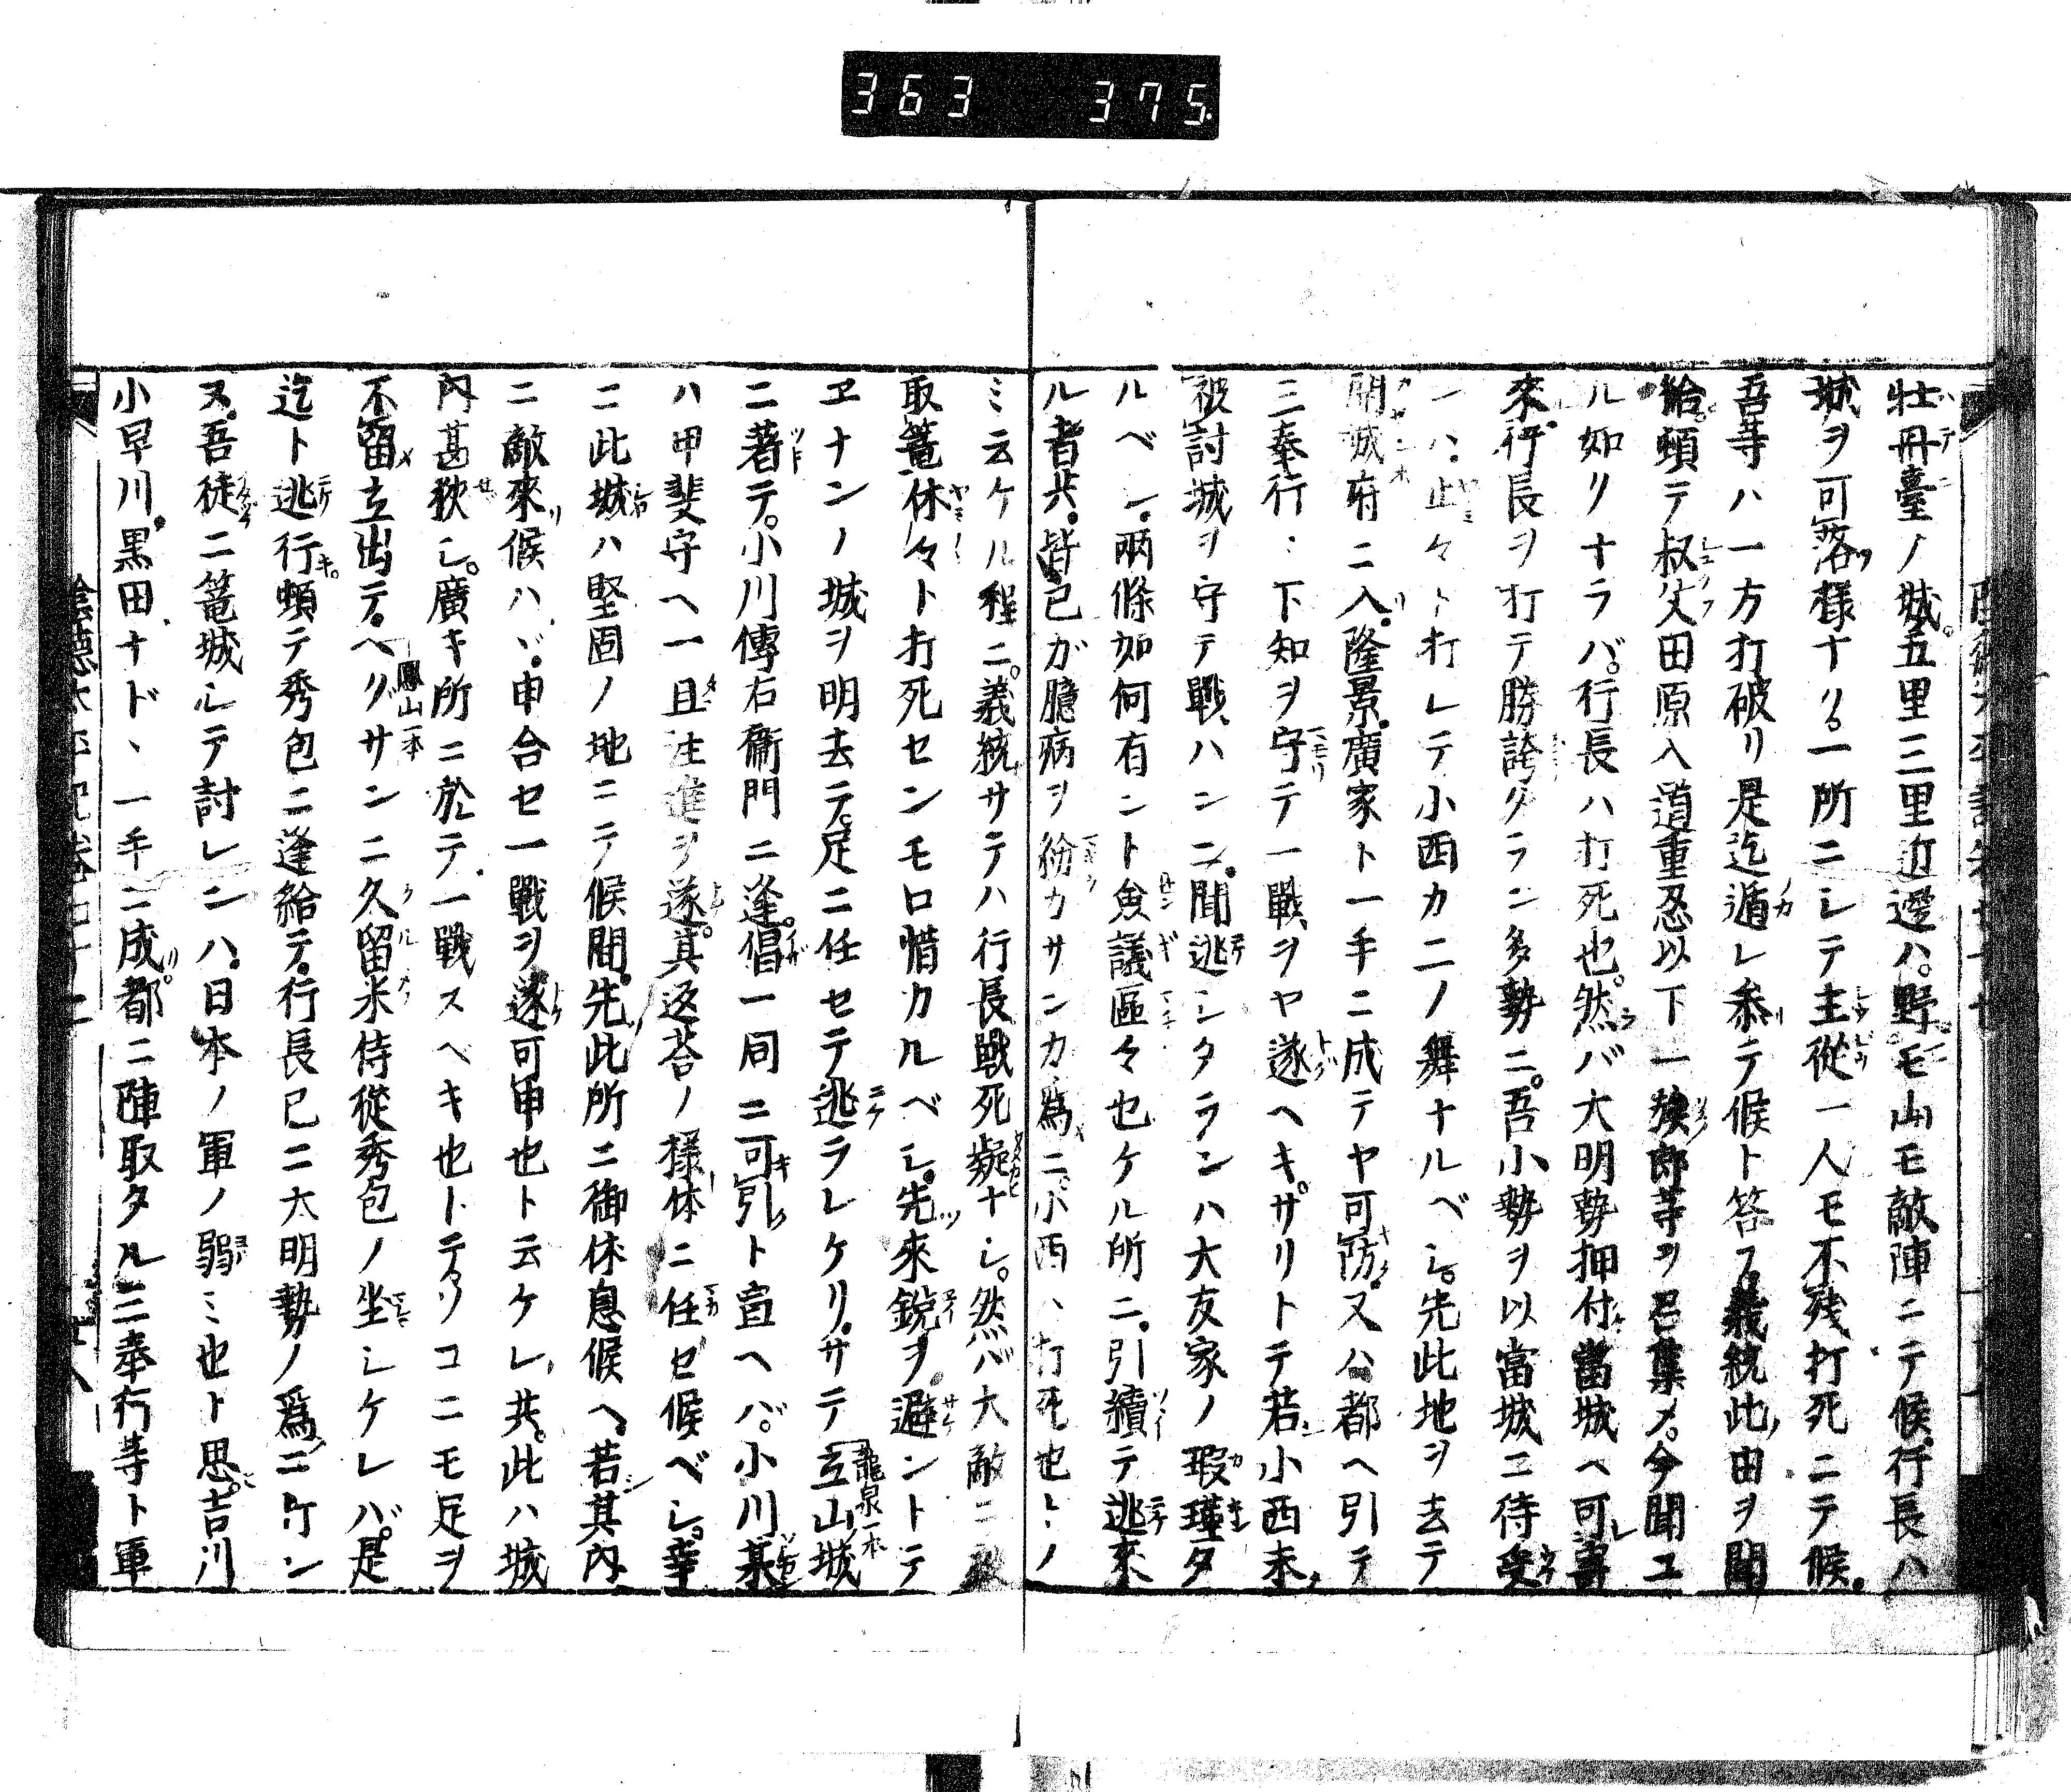 363 375
牡丹臺ノ城。五里三里近邊ハ。野モ山モ敵陣ニテ候。行長ハ
城ヲ可落様ナリ。一所ニシテ主従一人モ不残打死ニテ候。
吾等ハ一方打破リ是迄遁レ参テ候ト答フ。義統此由ヲ聞
給。頓テ叔父田原入道重忍以下一族郎等ヲ召集メ。今聞ユ
ル如リナラバ。行長ハ打死也。然バ大明勢押付當城ヘ可寄
來。行長ヲ打テ勝誇タラン多勢ニ。吾小勢ヲ以當城ニ待受
ンハ。止々ト打レテ小西カ二ノ舞ナルベシ。先此地ヲ去テ
開城府ニ入。隆景。廣家ト一手ニ成テヤ可防。又ハ都ヘ引テ
三奉行ノ下知ヲ守テ一戰ヲヤ遂ヘキ。サリトテ若小西未
被討城ヲ守テ戰ハンニ。聞逃シタランハ大友家ノ瑕瑾タ
ルベシ。兩條如何有ント僉議區々也ケル所ニ。引續テ逃來
ル者共。皆己が臆病ヲ紛カサンカ爲ニ。小西ハ打死也トノ
ミ云ケル程ニ。義統サテハ行長戰死疑ナシ。然バ大敵ニ被
取篭。休々ト打死センモ口惜カルベシ。先來鋭ヲ避ントテ
ヱナンノ城ヲ明去テ。足ニ任セテ逃ラレケリ。サテ立山城
龍泉一本
ニ著テ。小川傳右衛門ニ逢。倡一同ニ可引ト宣ヘバ。小川某
ハ甲斐守ヘ一旦注進ヲ遂。其返荅ノ様体ニ任セ候ベシ。幸
ニ此城ハ堅固ノ地ニテ候間。先此所ニ御休息候ヘ。若其内
ニ敵來候ハヾ。申合セ一戰ヲ遂可申也ト云ケレ共。此ハ城
内甚狹シ。廣キ所ニ於テ一戰スベキ也トテ。ソコニモ足ヲ
不留立出テ。ヘグサンニ久留米侍從秀包ノ坐シケレバ。是
鳳山一本
迄ト逃行。頓テ秀包ニ逢給テ。行長已ニ大明勢ノ爲ニ亡ン
ヌ。吾徒ニ篭城シテ討レンハ。日本ノ軍ノ弱ミ也ト思。吉川
小早川。黒田ナド、一手ニ成。都ニ陣取タル三奉行等ト軍